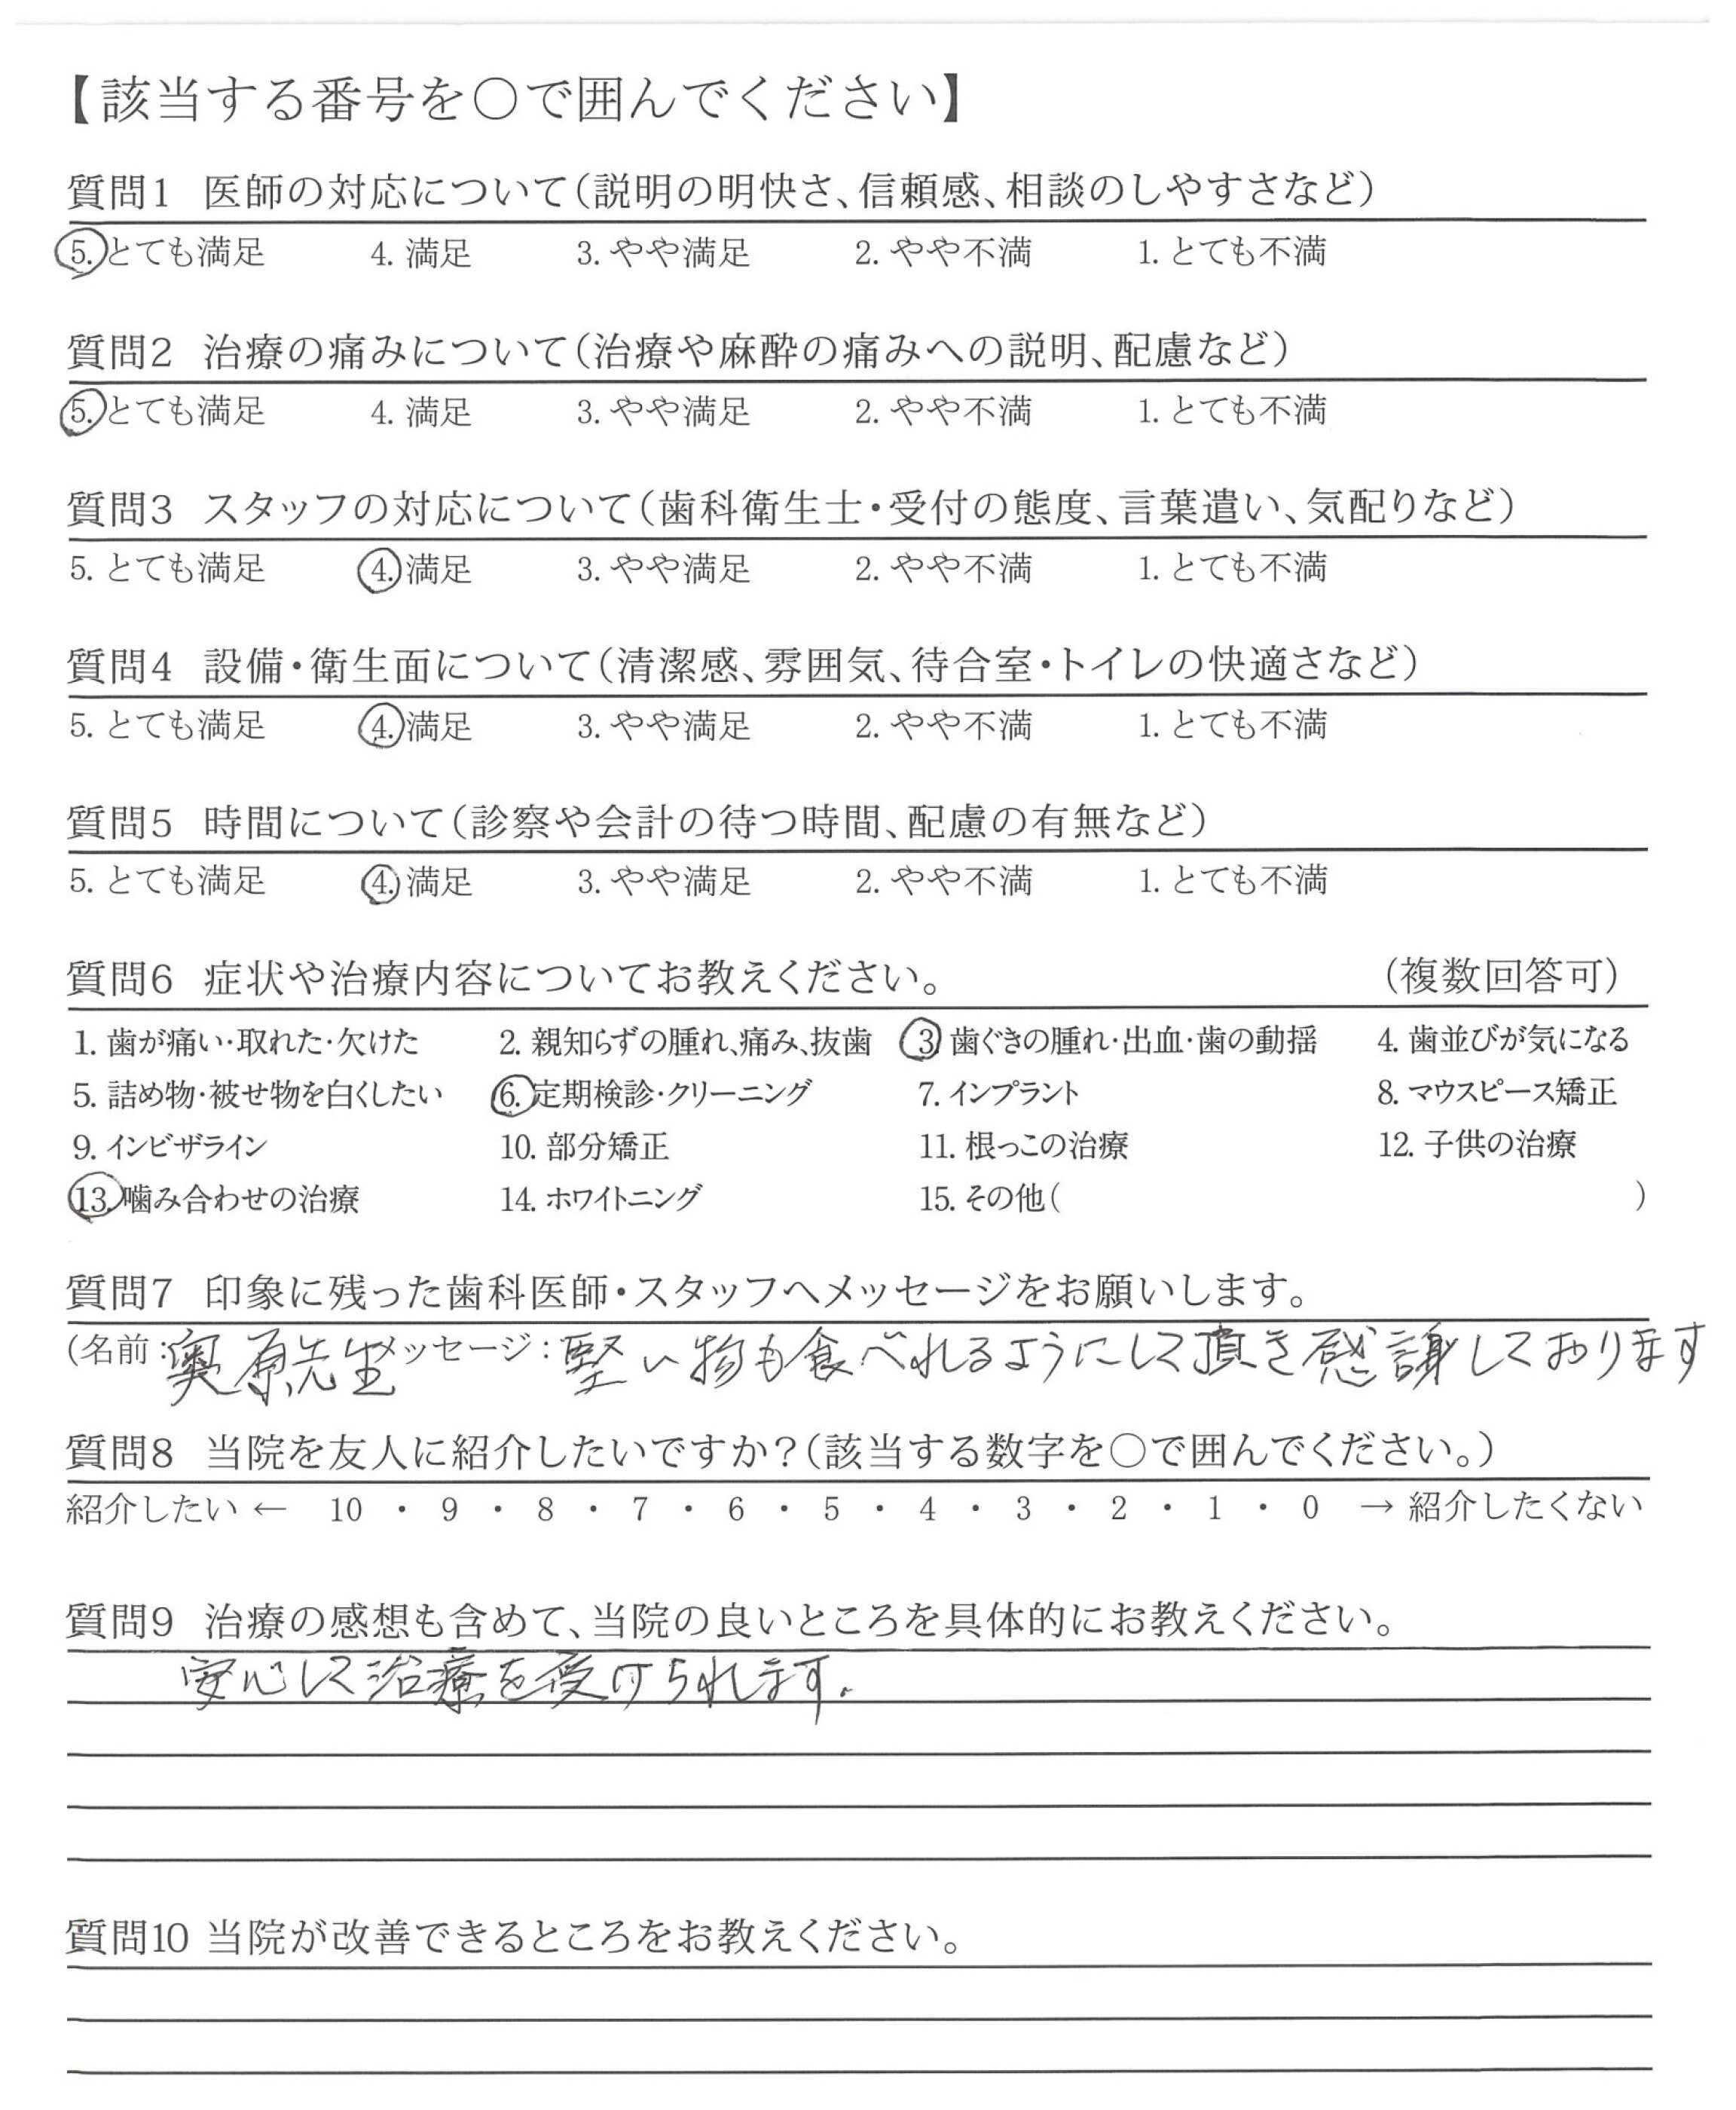 【該当する番号を〇で囲んでください】
質問1 医師の対応について(説明の明快さ、信頼感、相談のしやすさなど)
5. とても満足 4. 満足 3. やや満足 2. やや不満 1. とても不満
質問2 治療の痛みについて(治療や麻酔の痛みへの説明、配慮など)
5. とても満足 4. 満足 3. やや満足 2. やや不満 1. とても不満
質問3 スタッフの対応について(歯科衛生士・受付の態度、言葉遣い、気配りなど)
5. とても満足 4. 満足 3. やや満足 2. やや不満 1. とても不満
質問4 設備・衛生面について(清潔感、雰囲気、待合室・トイレの快適さなど)
5. とても満足 4. 満足 3. やや満足 2. やや不満 1. とても不満
質問5 時間について(診察や会計の待つ時間、配慮の有無など)
5. とても満足 4. 満足 3. やや満足 2. やや不満 1. とても不満
質問6 症状や治療内容についてお教えください。 (複数回答可)
1. 歯が痛い・取れた・欠けた 2. 親知らずの腫れ、痛み、抜歯 3. 歯ぐきの腫れ・出血・歯の動揺 4. 歯並びが気になる
5. 詰め物・被せ物を白くしたい 6. 定期検診・クリーニング 7. インプラント 8. マウスピース矯正
9. インビザライン 10. 部分矯正 11. 根っこの治療 12. 子供の治療
13. 噛み合わせの治療 14. ホワイトニング 15. その他( )
質問7 印象に残った歯科医師・スタッフへメッセージをお願いします。
(名前：奥原先生 メッセージ：堅い物も食べれるようにして頂き感謝しております
質問8 当院を友人に紹介したいですか？(該当する数字を〇で囲んでください。)
紹介したい ← 10 ・ 9 ・ 8 ・ 7 ・ 6 ・ 5 ・ 4 ・ 3 ・ 2 ・ 1 ・ 0 → 紹介したくない
質問9 治療の感想も含めて、当院の良いところを具体的にお教えください。
安心して治療を受けられます.
質問10 当院が改善できるところをお教えください。